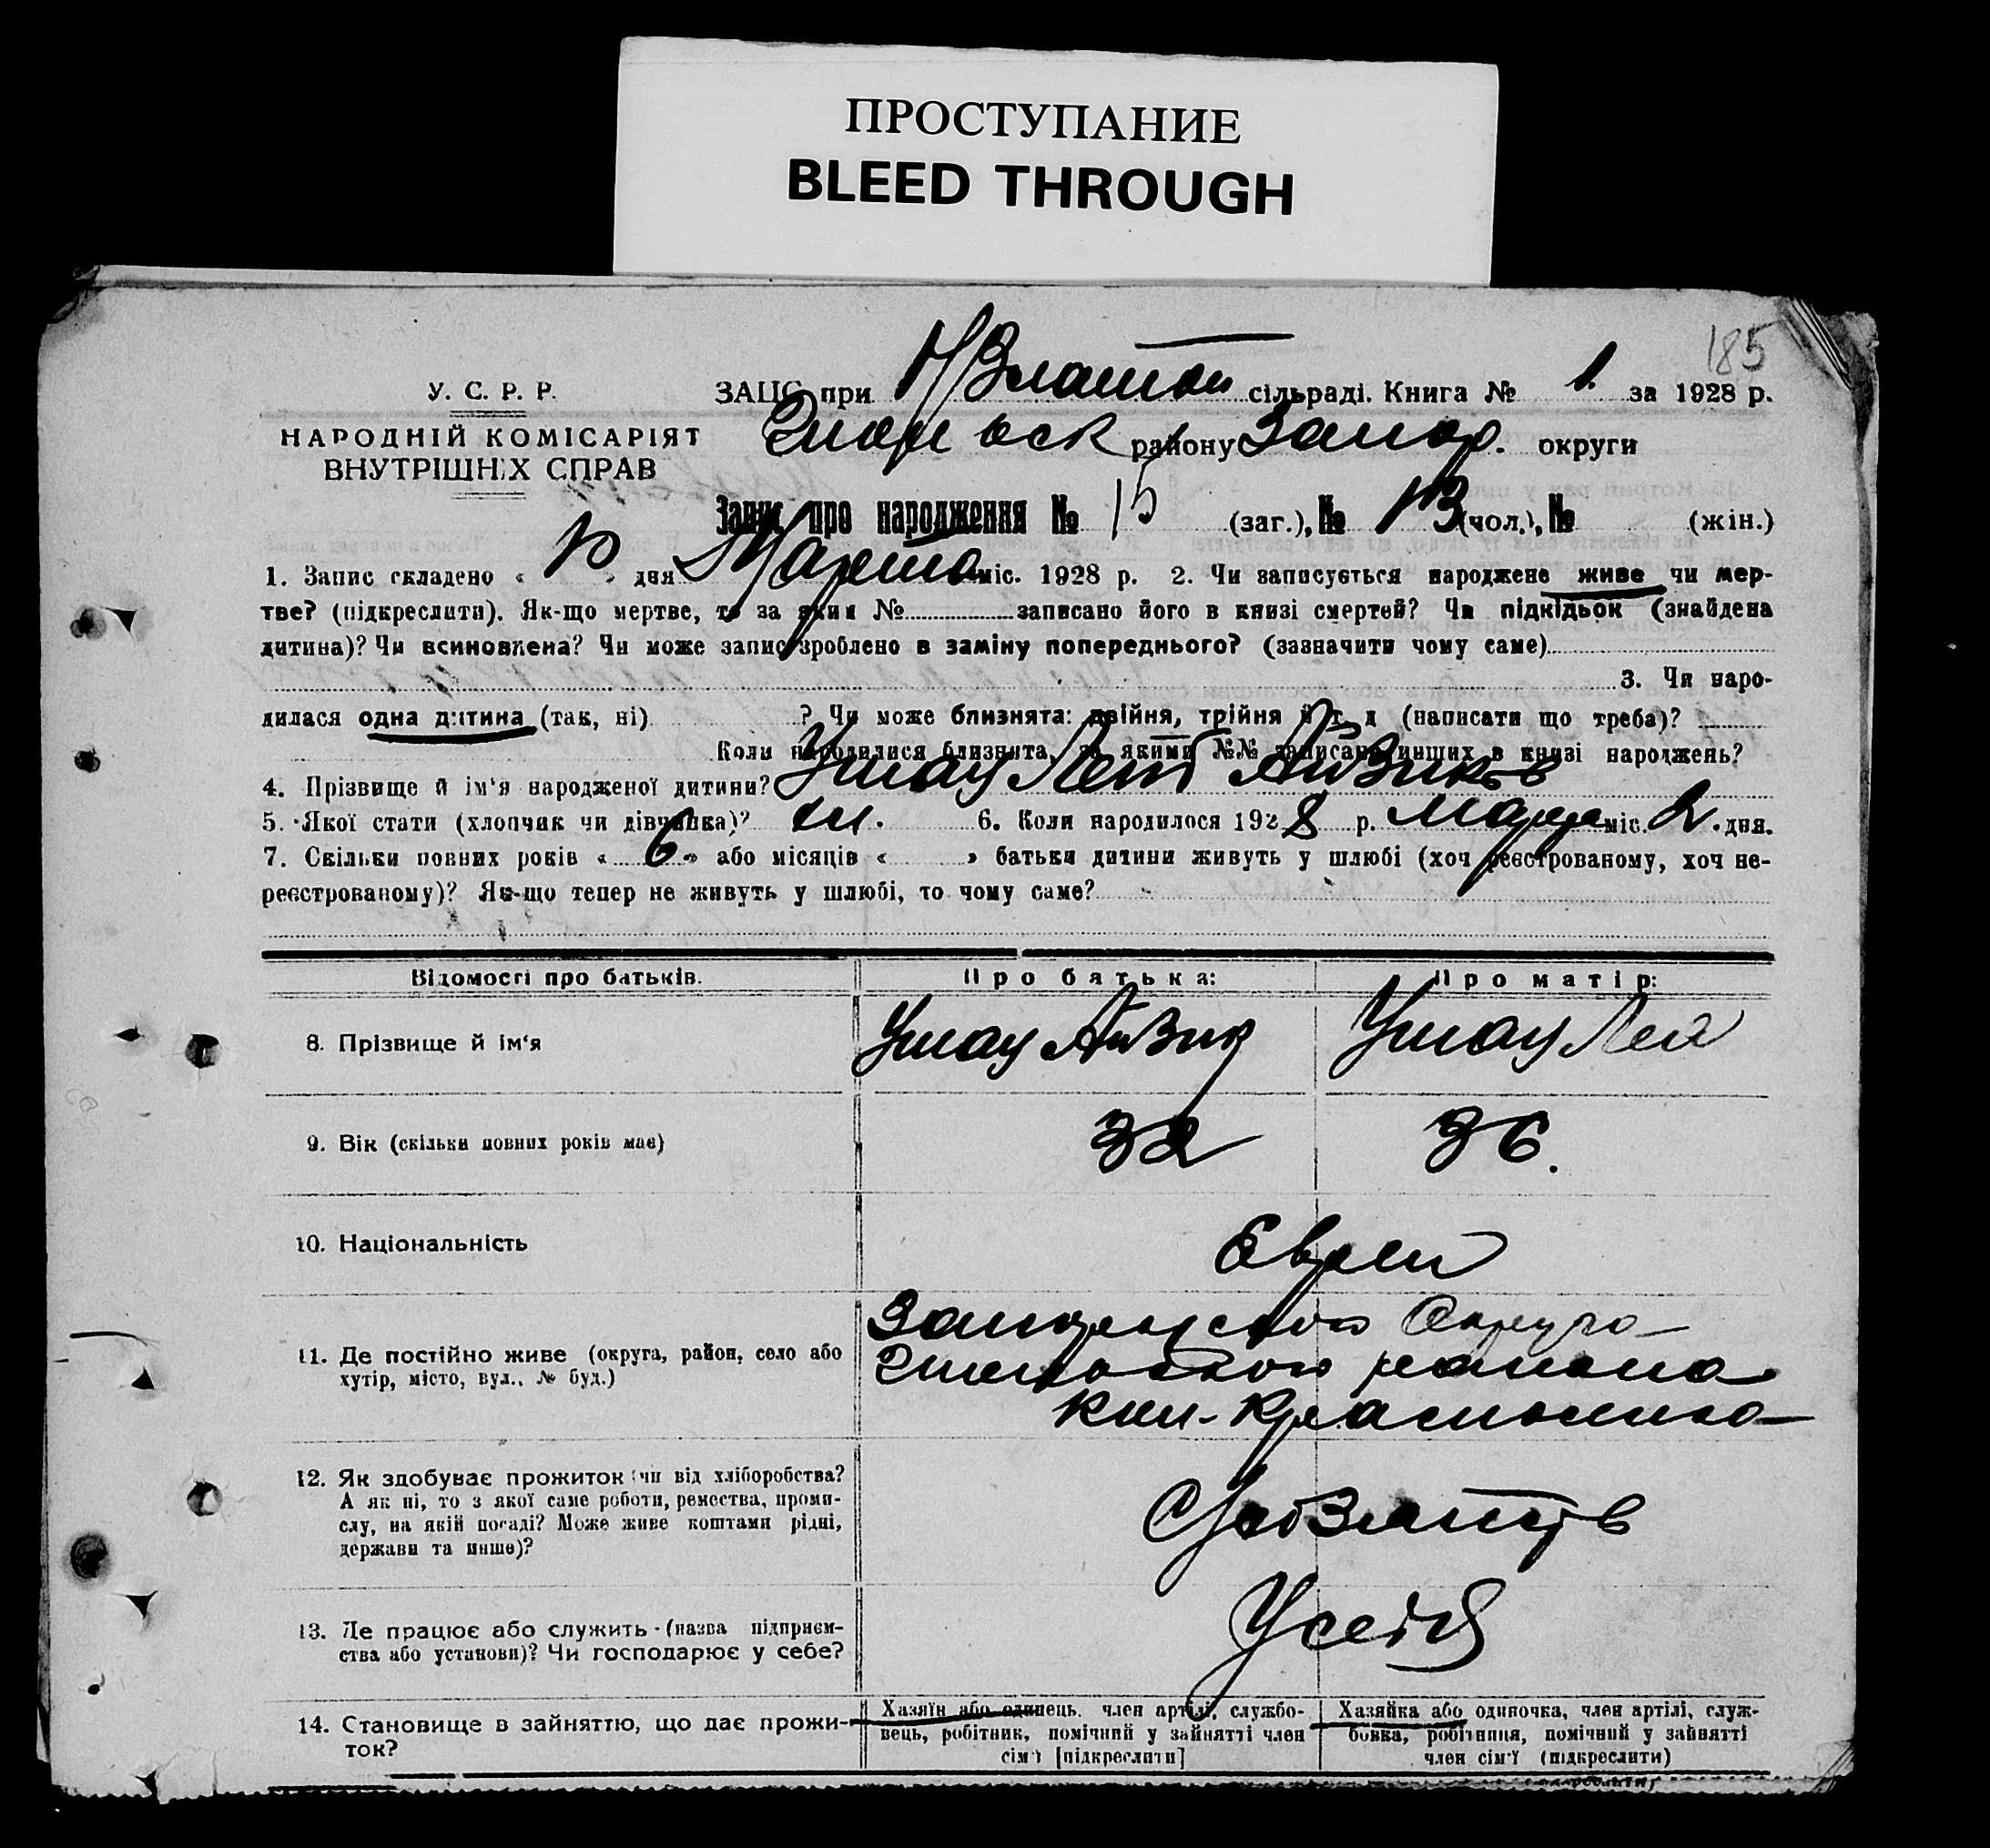 ПРОСТУПАНИЕ
BLEED THROUGH
185
У. С. Р. Р.
НАРОДНІЙ КОМІСАРІЯТ
ВНУТРІШНІХ СПРАВ
ЗАЦС при Н/Златоп сільраді. Книга № 1. за 1928 р.
району Запор. округи
Запис про народження № 15 (заг.), № 13 (чол.), № (жін.)
1. Запис складено « 10 » дня Марта міс. 1928 р. 2. Чи записується народжене живе чи мер-
тве? (підкреслити). Як-що мертве, то за яким № записано його в книзі смертей? Чи підкідьок (знайдена
дитина)? Чи всиновлена? Чи може запис зроблено в заміну попереднього? (зазначити чому саме)
3. Чи наро-
дилася одна дитина (так, ні) ? Чи може близнята: двійня, трійня й т. д (написати що треба)?
Коли народилися близнята, за якими №№ записано инших в книзі народжень?
4. Прізвище й ім'я народженої дитини?
5. Якої стати (хлопчик чи дівчинка)? 6. Коли народилося 1928 р. Марта міс. 2. дня.
7. Скільки повних років « 6 » або місяців « » батьки дитини живуть у шлюбі (хоч реєстрованому, хоч не-
реєстрованому)? Як-що тепер не живуть у шлюбі, то чому саме?
Відомості про батьків. Про батька: Про матір:
8. Прізвище й ім'я Умац Айзик Умац Лея
9. Вік (скільки повних років має) 32 36.
10. Національність Евреи
11. Де постійно живе (округа, район, село або
хутір, місто, вул., № буд.)
Округа
района
12. Як здобуває прожиток (чи від хліборобства?
А як ні, то з якої саме роботи, ремества, проми-
слу, на якій посаді? Може живе коштами рідні,
держави та инше)?
13. Де працює або служить (назва підприєм-
ства або установи)? Чи господарює у себе?
У себя
14. Становище в зайняттю, що дає прожи-
ток?
Хазяїн або одинець, член артілі, службо-
вець, робітник, помічний у зайнятті член
сім'ї [підкреслити]
Хазяйка або одиночка, член артілі, служ-
бовка, робітниця, помічний у зайнятті
член сім'ї (підкреслити)